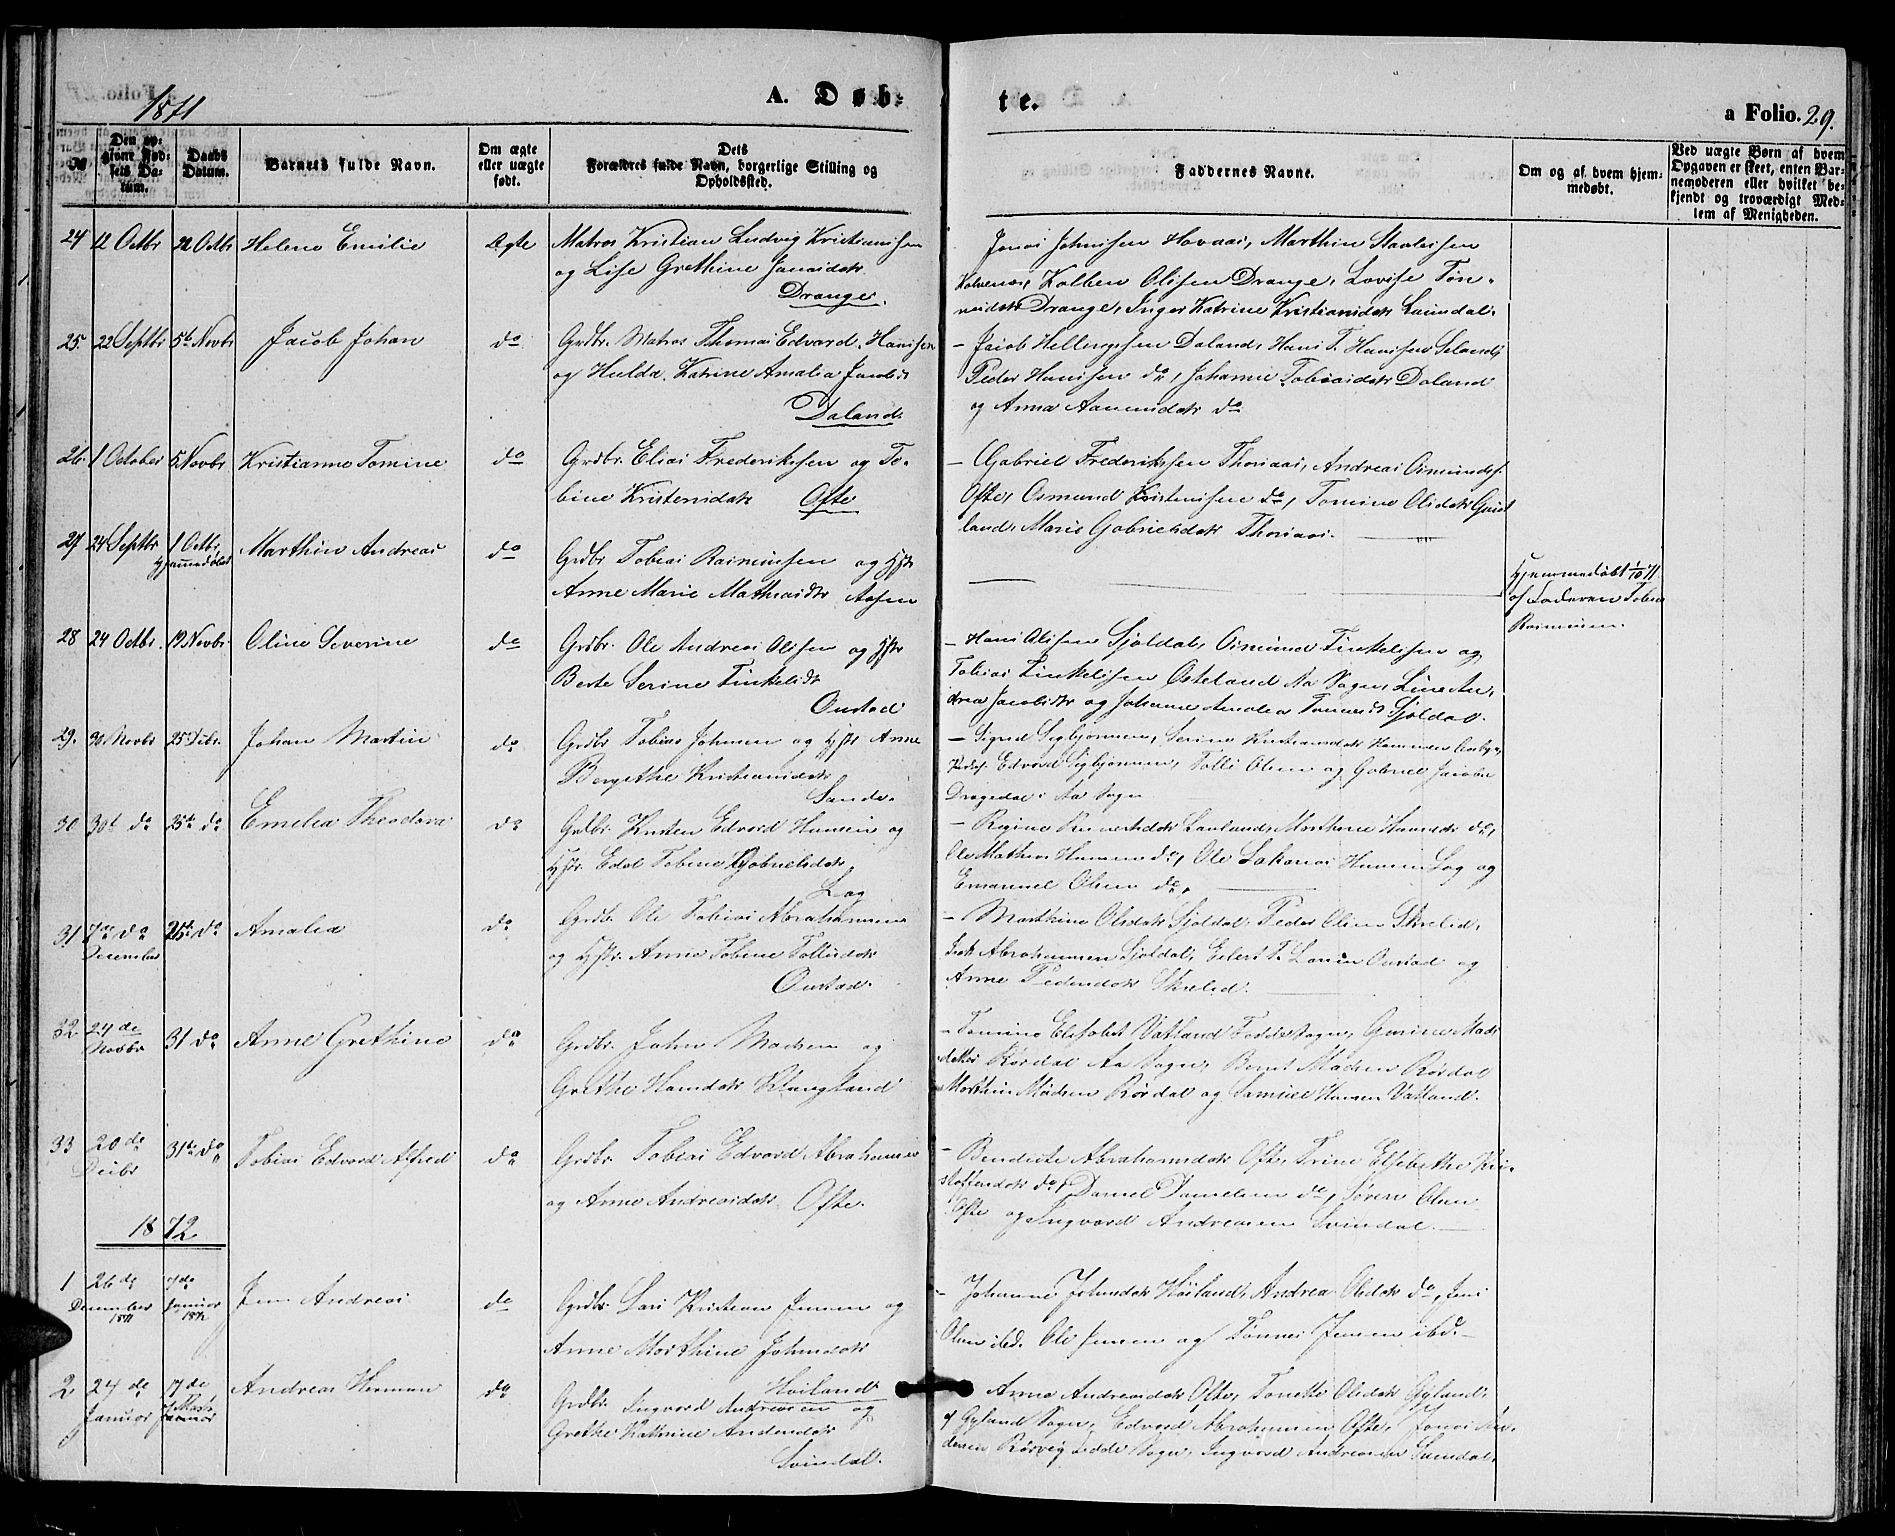 1871
A. Døb-
te.
a Folio. 29.
№
Den op-
givne Fød-
sels Da-
tum.
Daabs
Datum.
Barnets fulde Navn.
Om ægte
eller uægte
født.
Dets
Forældres fulde Navn, borgerlige Stilling og
Opholdssted.
Faddernes Navne.
Om og af hvem hjem-
medøbt.
Ved uægte Børn af hvem
Opgaven er skeet, enten Bar-
nemoderen eller hvilket be-
kjendt og troværdigt Med-
lem af Menigheden.
24 12 Octbr 22 Octbr Helene Emilie Ægte Matros Kristian Ludvig Kristiansen
og Lise Grethine Jonasdatr
Drange.
Jonas Johnsen Hovaas, Marthin Staalesen
Kolben Olsen Drange, Lovise Tøn-
nesdatr Drange, Inger Katrine Kristiansdatr
25. 22 Septbr 5te Novbr Jacob Johan do Grdbr. Matros Thomas Edvard Hansen
og Hulda Katrine Amalia Jacobsd
Daland
- Jacob Helliesen Daland, Hans T. Hansen
Peder Hansen do, Johanne Tobiasdatr Daland
og Anna Aanensdatr do
26. 1 October 5 Novbr Kristianne Tomine do Grdbr. Elias Frederiksen og To-
bine Kristensdatr Ofte
- Gabriel Frederiksen Thorsaas, Andreas Osmunds.
Ofte, Osmund Kristensen do, Tomine Olsdatr
land, Marie Gabrielsdatr Thorsaas.
27 24 Septbr 1 Octbr Hjemmedøbt Marthin Andreas do Grdbr Tobias Rasmusen og Hstr
Anne Marie Mathiasdtr Aasen
Hjemmedøbt 1/10 71
af Faderen Tobias
Rasmusen.
28 24 Octbr. 19 Novbr. Oline Severine do Grdbr. Ole Andreas Olsen og Hstr
Berte Serine Tinkelsdtr
Oustad
- Hans Olsen Sjøldal, Osmund Tinkelsen og
Tobias Tinkelsen Osteland Aa Sogn, Line An-
drea Jacobsdtr og Johanne Amalia Sjøldal.
29. 30 Novbr 25 Debr. Johan Martin do Grdbr Tobias Johnsen og Hstr Anne
Bergithe Kristiansdatr
Sande.
- Sigrid Sigbjørnsen, Serine Kristiansdatr
Edvard Sigbjørnsen, Tolli Olsen og Gabriel Jacobs
Dragedal i Aa Sogn
30 30te do 25de do Emelia Theodora do Grdbr Kristen Edvard Hansen og
Hstr. Edel Tobine Gabrielsdatr
Log
- Regine Lauland, Marthine Hansdtr do,
Ole Mathias Hansen do, Ole Sakarias Hansen Log og
Emanuel Olsen do.
31 7de do December 25de do Amalia do Grdbr Ole Tobias Abrahamsen
og Hstr. Anna Tobine Tollisdatr
Oustad.
- Marthine Olsdatr Sjøldal, Peder Olsen Skreled,
Isak Abrahamsen Sjøldal, Eilert T. Larsen Oustad og
Anne Pedersdatr Skreled.
32 24de Novbr 31 do Anne Grethine do Grdbr. John Madsen og
Grethe Hansdatr Klungland
- Tomine Elisabet Vatland Fedde Sogn, Gurine Mads-
datter Rørdal Aa Sogn, Bernt Madsen Rørdal
Marthin Madsen Rørdal og Samuel Hansen Vatland.
33 20de Debr 31te do Tobias Edvard Alfred do Grdbr. Tobias Edvard Abrahamsen
og Anne Andreasdatr Ofte.
- Bendicte Abrahamsdatr Ofte, Trine Elsebethe Kri-
stoffersdatr do, Daniel Danielsen do, Søren Olsen
Ofte og Ingvard Andreasen Svindal.
1872
1 26de December 1871 7de Januar 1872 Jens Andreas do Grdbr. Lars Kristian Jensen og
Anne Marthine Johnsdatr
Høiland
- Johanne Johnsdatr Høiland, Andrea Olsdatr do, Jens
Olsen ibd. Ole Jensen og Tønnes Jensen ibd.
2 24de Januar 17de Marts Januar Andreas Herman do Grdbr. Ingvard Andreasen og
Grethe Kathrine Andersdatr
Svindal.
Anne Andreasdatr Ofte, Tonette Olsdatr Gyland,
af Gyland Sogn, Edvard Abrahamsen Ofte, Jonas An-
dersen Rørvig Fedde Sogn, Ingvard Andreasen Svindal.